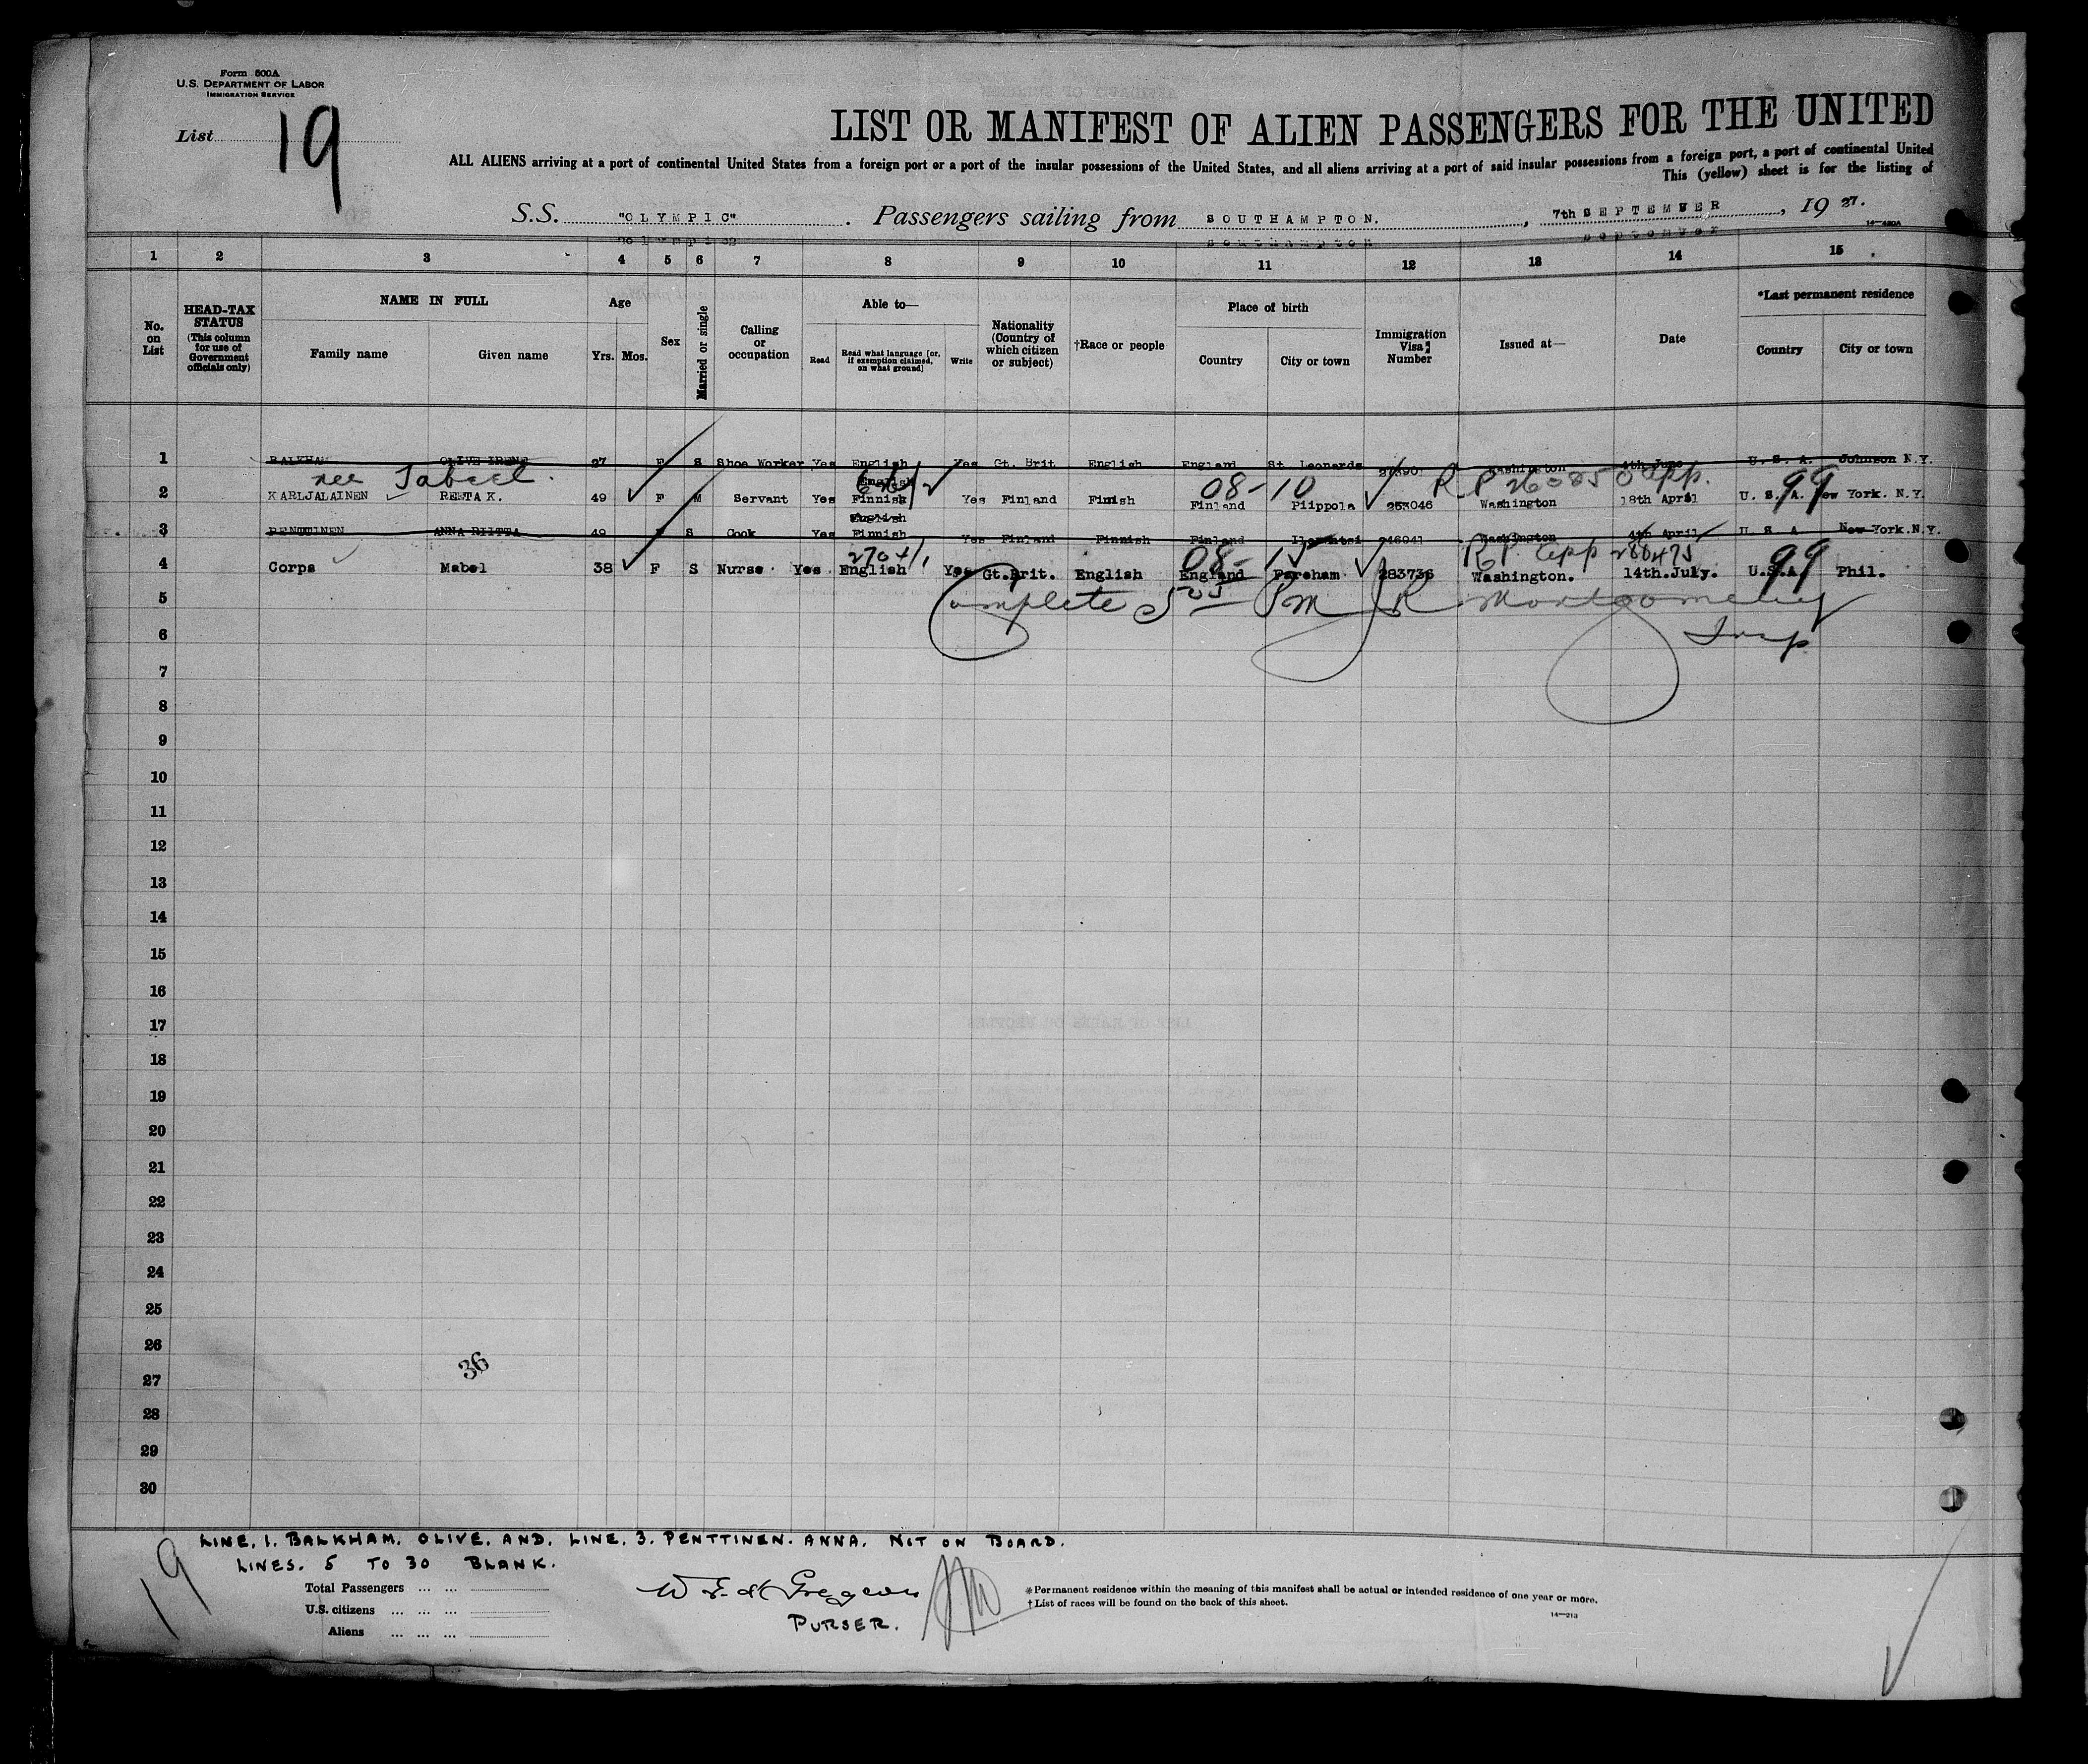 Form 500A
U.S. DEPARTMENT OF LABOR
IMMIGRATION SERVICE
List 19
LIST OR MANIFEST OF ALIEN PASSENGERS FOR THE UNITED
ALL ALIENS arriving at a port of continental United States from a foreign port or a port of the insular possessions of the United States, and all aliens arriving at a port of said insular possessions from a foreign port, a port of continental United
This (yellow) sheet is for the listing of
S.S. "OLYMPIC". Passengers sailing from SOUTHAMPTON., 7th SEPTEMBER, 19 27.
14-480A
1 2 3 4 5 6 7 8 9 10 11 12 13 14 15
No. on List
HEAD-TAX STATUS (This column for use of Government officials only)
NAME IN FULL
Family name Given name
Age
Yrs. Mos.
Sex
Married or single
Calling or occupation
Able to—
Read Read what language [or, if exemption claimed, on what ground] Write
Nationality (Country of which citizen or subject)
†Race or people
Place of birth
Country City or town
Immigration Visa Number
Issued at—
Date
*Last permanent residence
Country City or town
1 BALKHAM OLIVE IRENE 27 F S Shoe Worker Yes English Yes Gt. Brit English England St. Leonards Washington 4th June U. S. A. Johnson N.Y.
nee English 08-10 R P App. 99
2 KARLJALAINEN REETA K. 49 F M Servant Yes Finnish Yes Finland Finish Finland Piippola 253046 Washington 18th April U. S. A. New York. N.Y.
English
3 PENTTINEN ANNA RIITTA 49 F S Cook Yes Finnish Yes Finland Finnish Finland 246041 Washington 4th April U. S. A New York.N.Y.
08- R.P. App 99
4 Corps Mabel 38 F S Nurse Yes English Yes Gt.Brit. English England Fareham 283736 Washington. 14th.July. U.S.A. Phil.
5 Complete PM J R Montgomery
6 Insp
7
8
9
10
11
12
13
14
15
16
17
18
19
20
21
22
23
24
25
26
36
27
28
29
30
LINE. 1. BALKHAM. OLIVE. AND. LINE. 3. PENTTINEN. ANNA. NOT ON BOARD.
LINES. 5 TO 30 BLANK.
19
Total Passengers ... ...
U.S. citizens ... ... ...
Aliens ... ... ...
PURSER.
*Permanent residence within the meaning of this manifest shall be actual or intended residence of one year or more.
†List of races will be found on the back of this sheet.
14-213